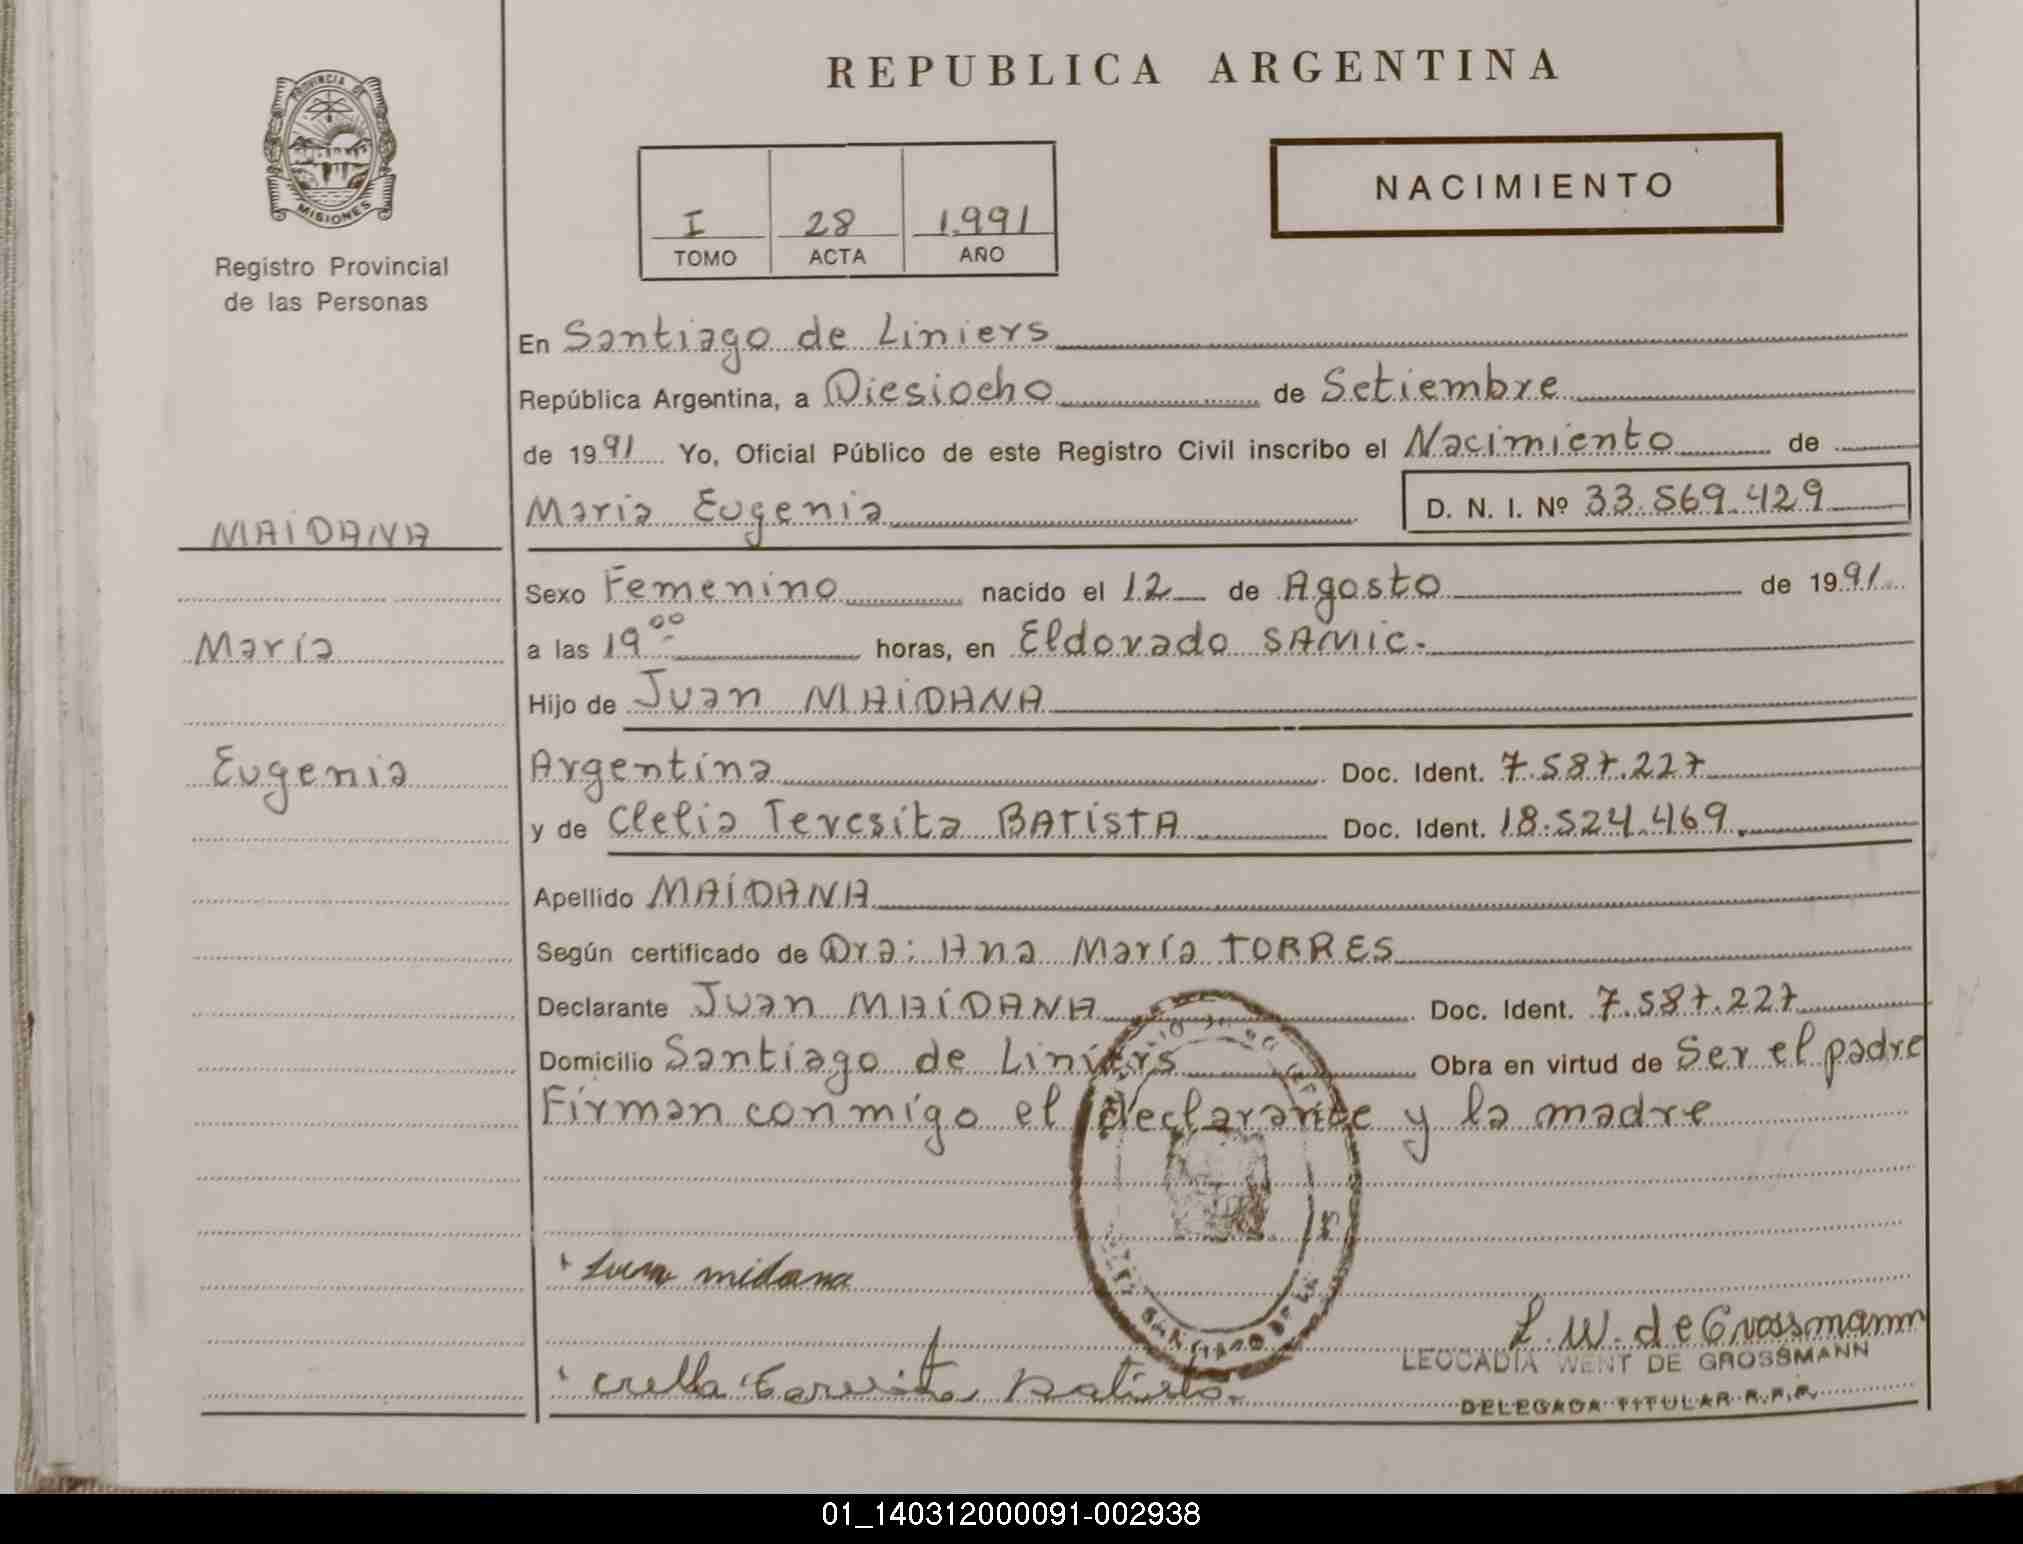 REPUBLICA ARGENTINA
PROVINCIA DE
MISIONES
Registro Provincial
de las Personas
NACIMIENTO
I 28 1.991
TOMO ACTA AÑO
En Santiago de Liniers
República Argentina, a Diesiocho de Setiembre
de 1991 Yo, Oficial Público de este Registro Civil inscribo el Nacimiento de
MAIDANA
Maria Eugenia D. N. I. Nº 33.569.429
Sexo Femenino nacido el 12 de Agosto de 1991
María
a las 19 00 horas, en Eldorado SAMIC.
Hijo de Juan MAIDANA
Eugenia
Argentina Doc. Ident. 7.587.227
y de Clelia Teresita BATISTA Doc. Ident. 18.524.469.
Apellido MAIDANA
Según certificado de Dra: Ana María TORRES
Declarante Juan MAIDANA Doc. Ident. 7.587.227
Domicilio Santiago de Liniers Obra en virtud de Ser el padre
Firman conmigo el declarante y la madre
SANTIAGO DE
L. W. de Grossmann
LEOCADIA WENT DE GROSSMANN
DELEGADA TITULAR R.P.P.
01_140312000091-002938